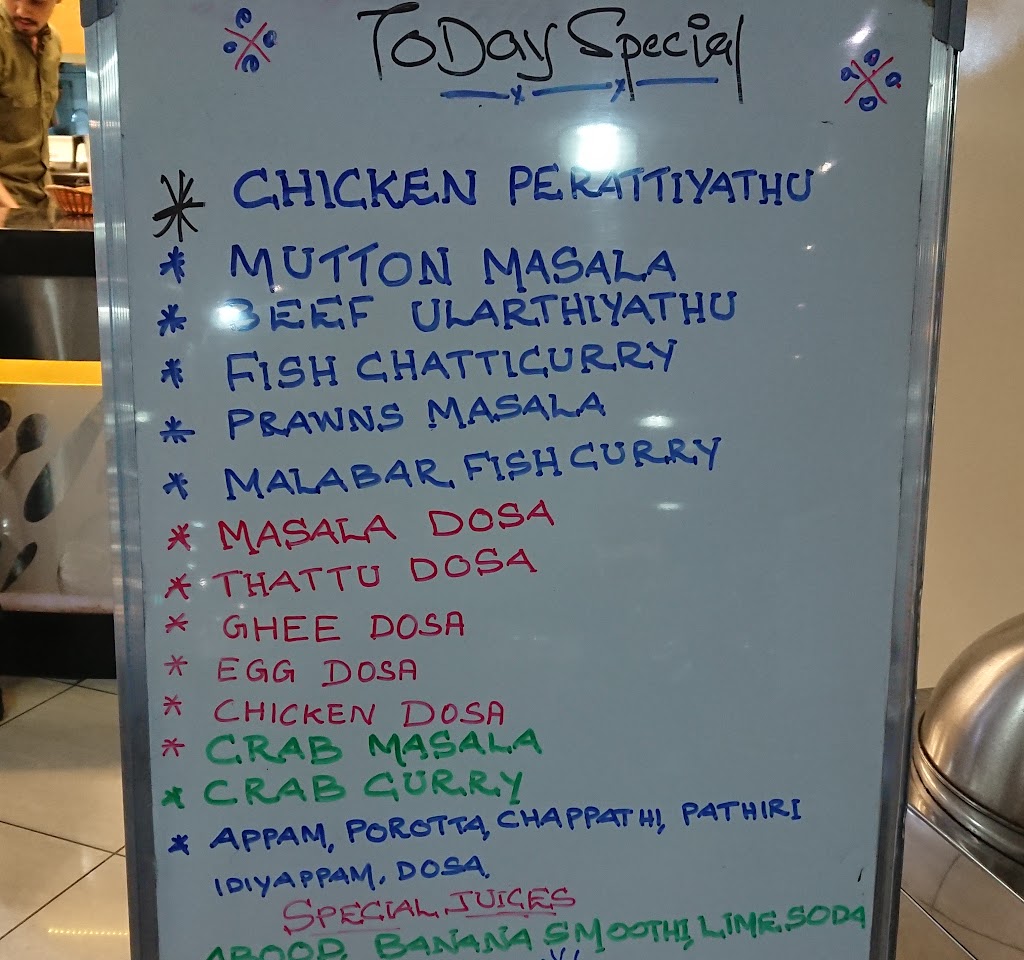 ToDay Special
* CHICKEN PERATTIYATHU
* MUTTON MASALA
* BEEF ULARTHIYATHU
* FISH CHATTICURRY
* PRAWNS MASALA
* MALABAR FISH CURRY
* MASALA DOSA
* THATTU DOSA
* GHEE DOSA
* EGG DOSA
* CHICKEN DOSA
* CRAB MASALA
* CRAB CURRY
* APPAM, POROTTA, CHAPPATHI, PATHIRI
IDIYAPPAM, DOSA,
SPECIAL JUICES
ABOOD, BANANA SMOOTHI, LIME SODA